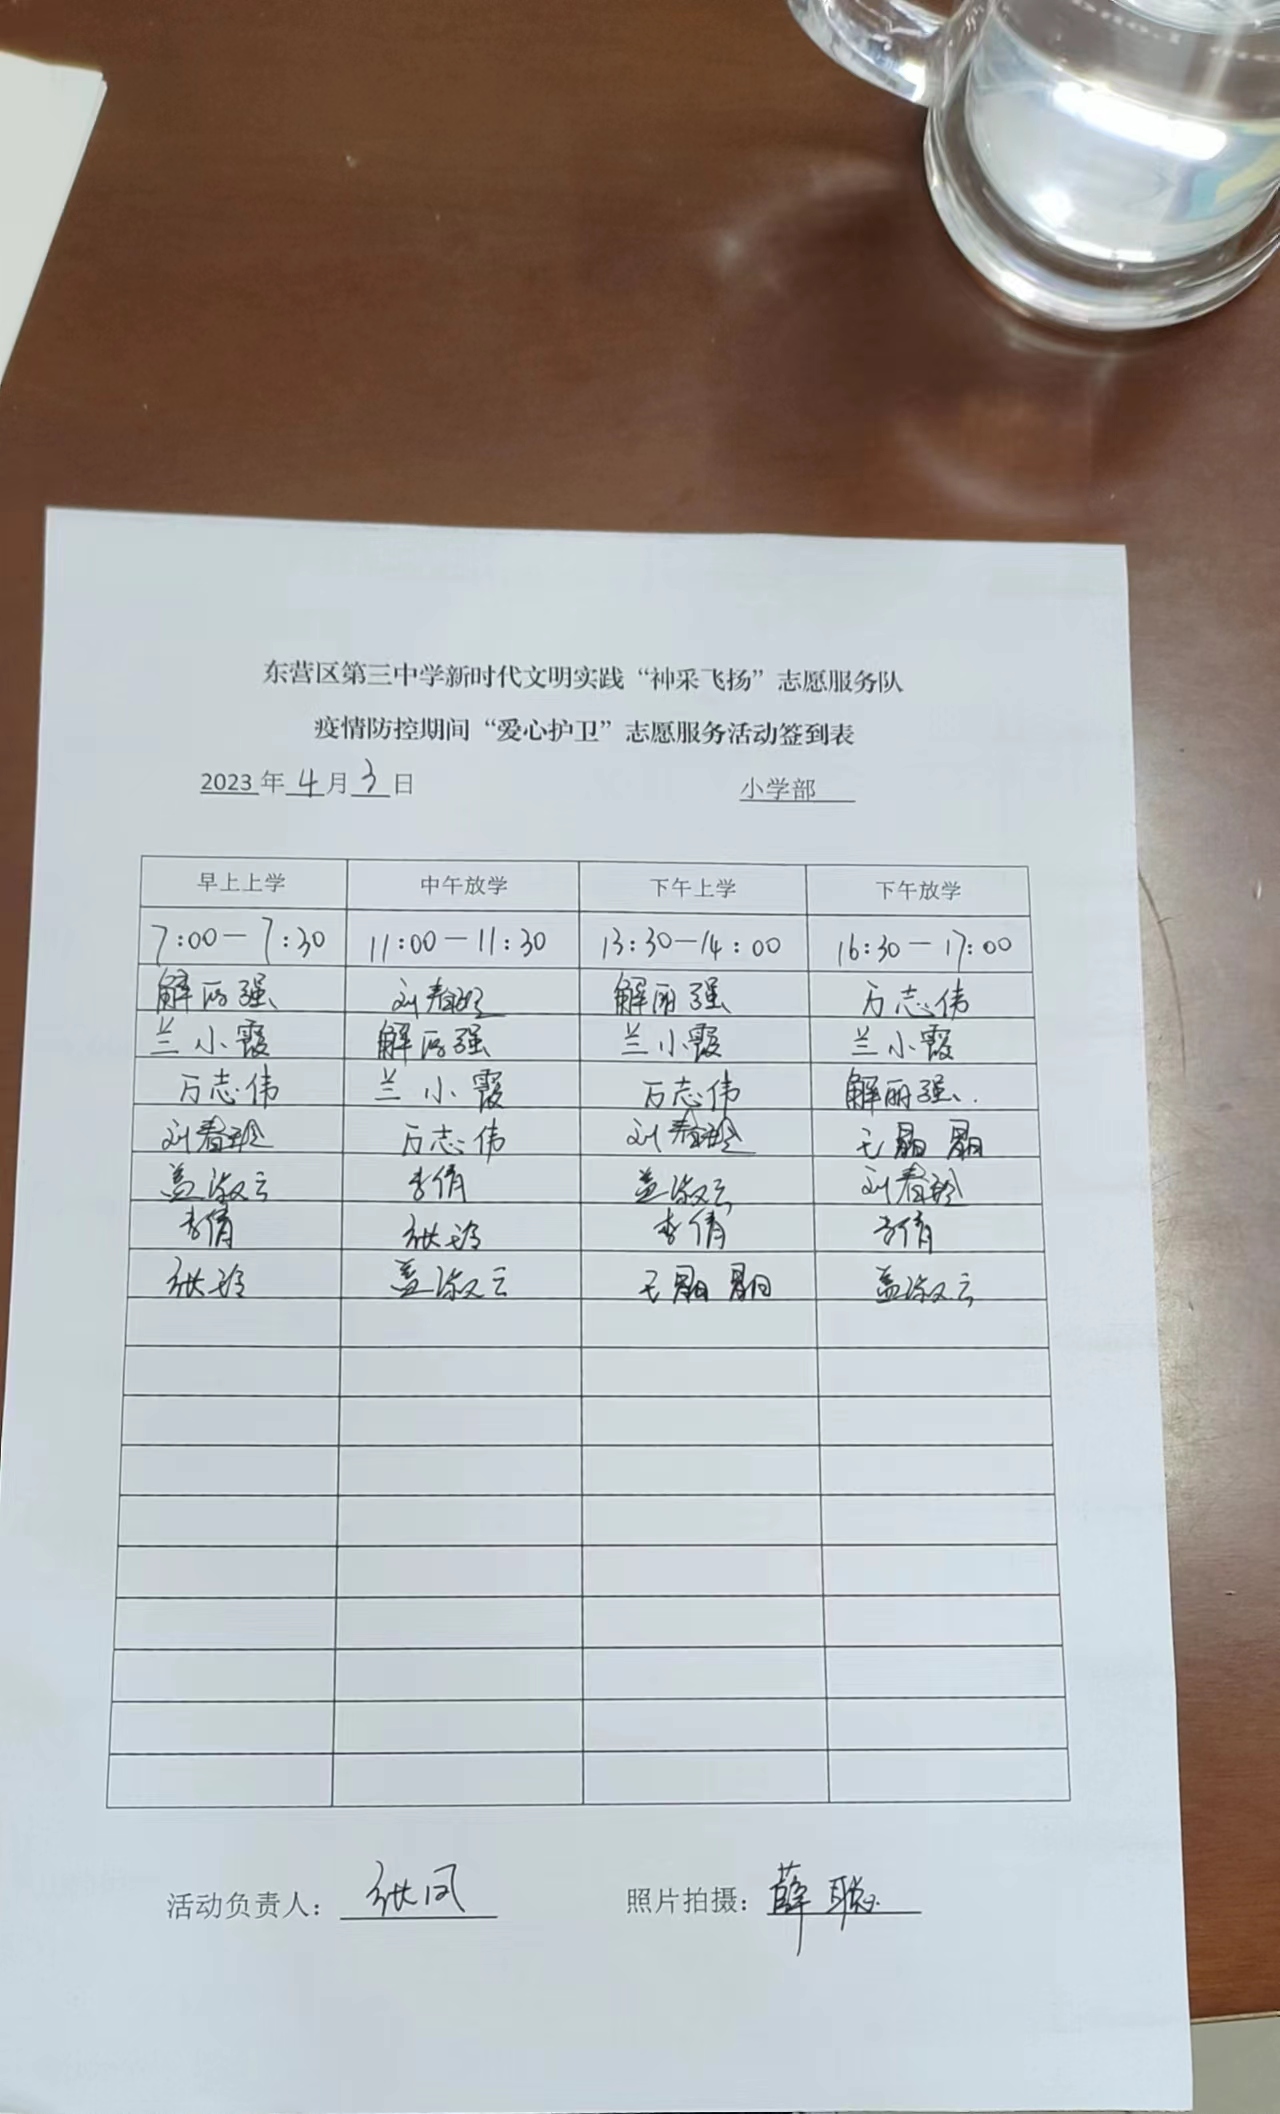 东营区第三中学新时代文明实践“神采飞扬”志愿服务队
疫情防控期间“爱心护卫”志愿服务活动签到表
2023年4月3日 小学部
早上上学 中午放学 下午上学 下午放学
7:00-7:30 11:00-11:30 13:30-14:00 16:30-17:00
解丽强 刘春玲 解丽强 万志伟
兰小霞 解丽强 兰小霞 兰小霞
万志伟 兰小霞 万志伟 解丽强
刘春玲 万志伟 刘春玲
盖淑云 李倩 盖淑云 刘春玲
李倩 张玲 李倩 李倩
张玲 盖淑云 盖淑云
活动负责人：张凤 照片拍摄：薛聪